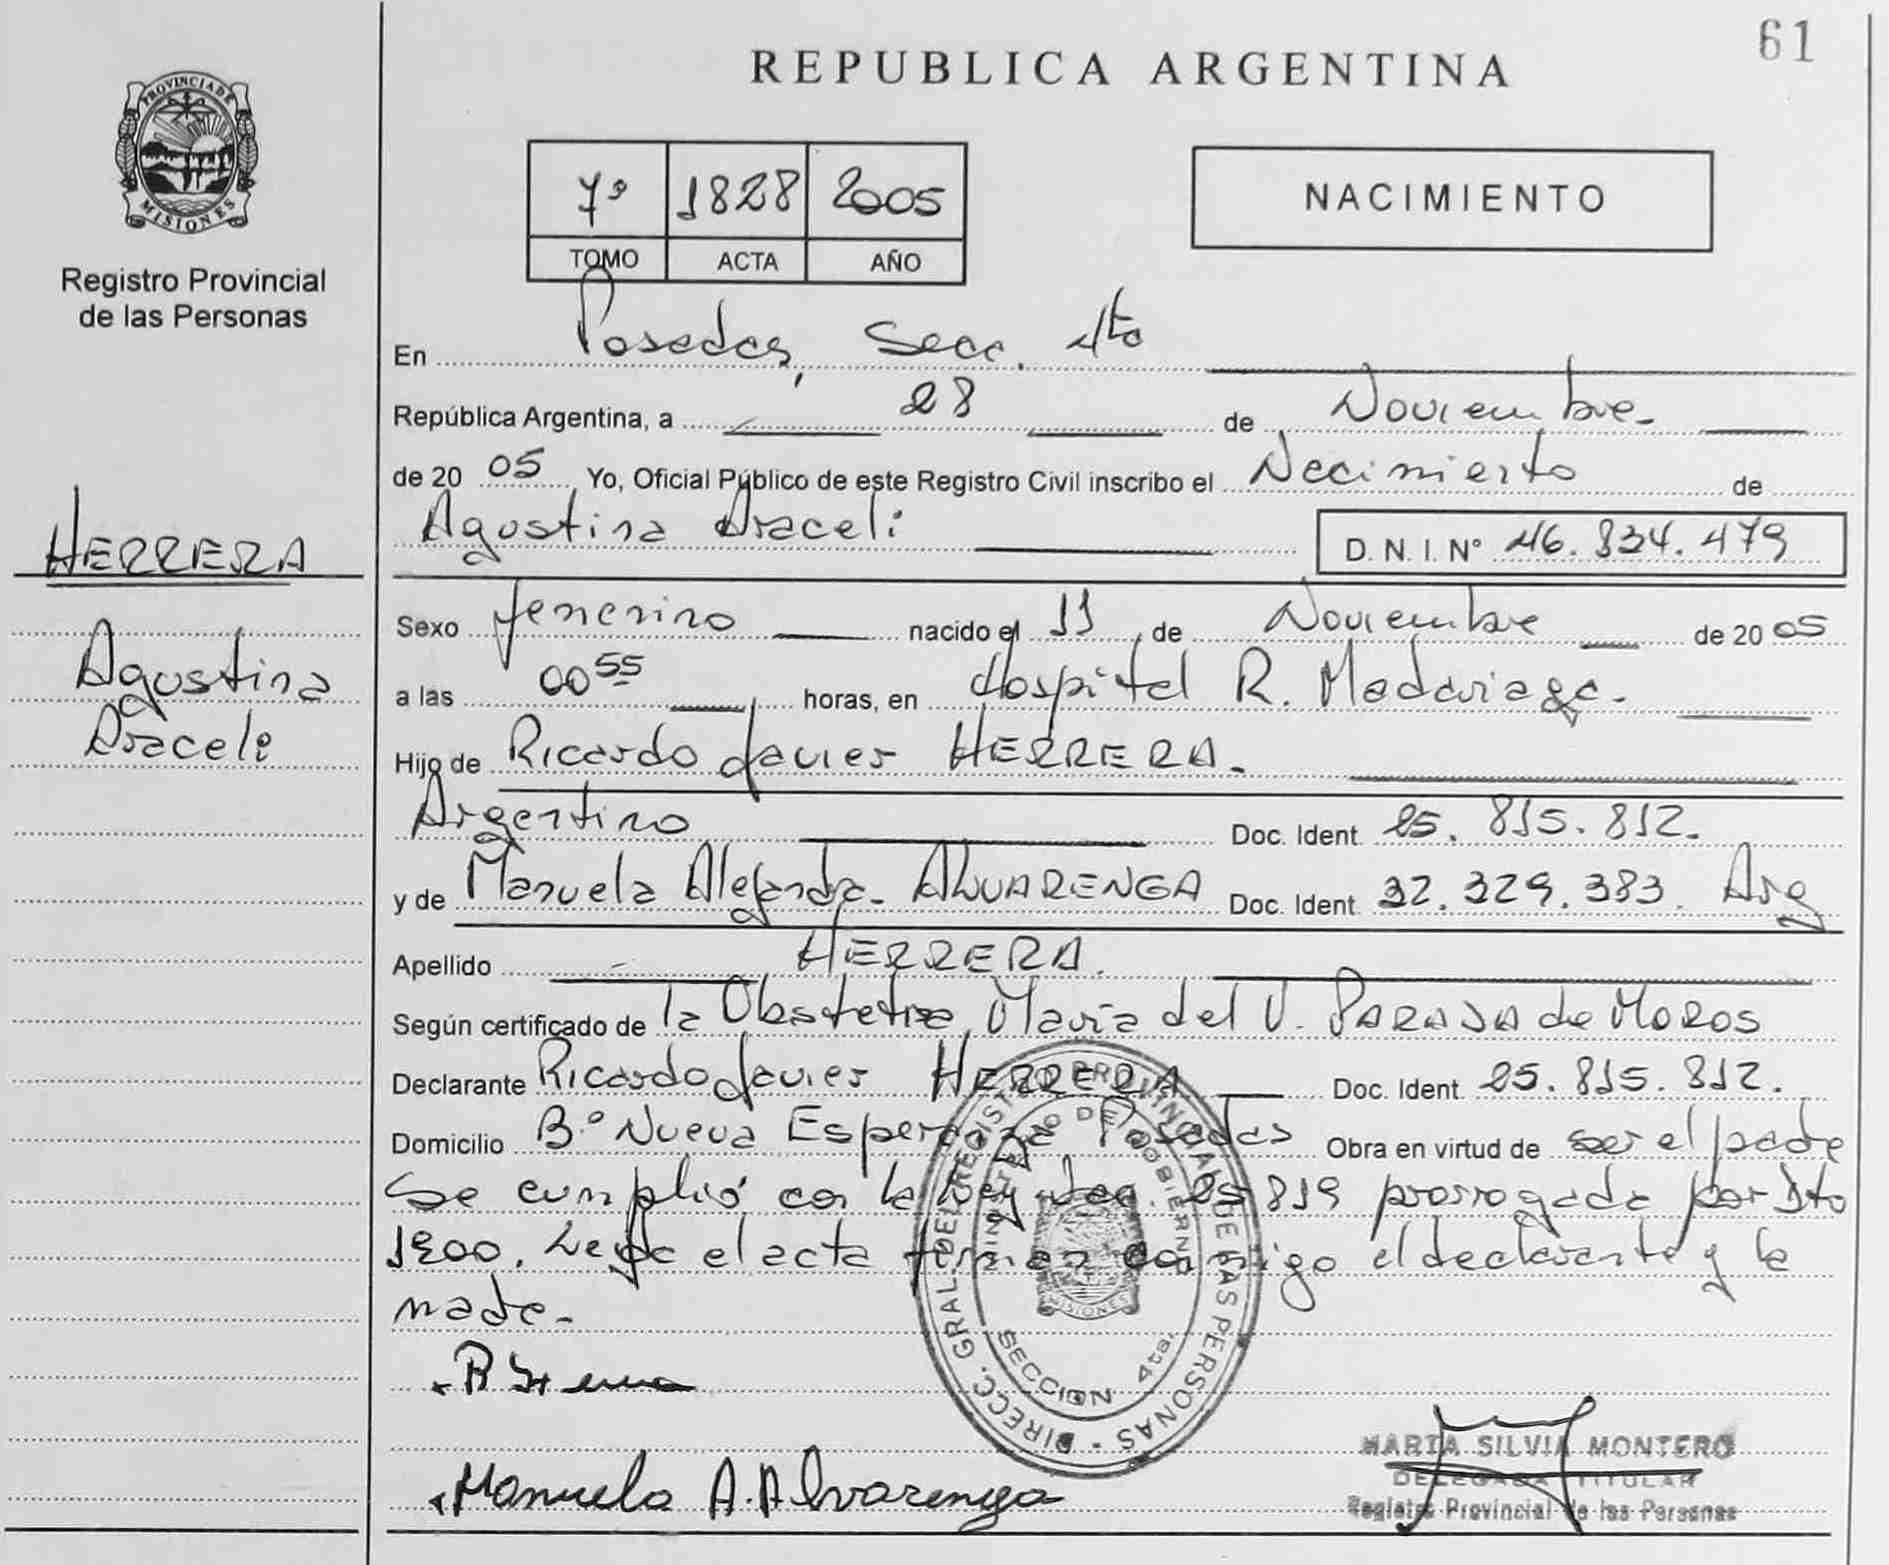 61
REPUBLICA ARGENTINA
PROVINCIA DE
MISIONES
Registro Provincial
de las Personas
7º 1828 2005
TOMO ACTA AÑO
NACIMIENTO
En Posadas, Secc. 4ta
República Argentina, a 28 de Noviembre
de 20 05 Yo, Oficial Público de este Registro Civil inscribo el Nacimiento de
Agustina Araceli D. N. I. Nº 46.834.479
HERRERA
Agustina
Araceli
Sexo femenino nacido el 11 de Noviembre de 20 05
a las 00 55 horas, en Hospital R. Madariaga.
Hijo de Ricardo Javier HERRERA.
Argentino Doc. Ident. 25. 815. 812.
y de Manuela Alejandra. ALVARENGA Doc. Ident. 32. 329. 383. Arg
Apellido HERRERA.
Según certificado de la Obstetra María del V. PARAJA de MOROS
Declarante Ricardo Javier HERRERA Doc. Ident. 25. 815. 812.
Domicilio Bº Nueva Esperanza Posadas Obra en virtud de ser el padre
Se cumplió con la Ley 25819 prorrogada por Dto
1900. Leída el acta firman conmigo el declarante y la
madre.
Manuela A. Alvarenga
DIRECC. GRAL. DEL REGISTRO PROVINCIAL DE LAS PERSONAS
MINISTERIO DE GOBIERNO
MISIONES
SECCION 4ta.
MARTA SILVIA MONTERO
DELEGADA TITULAR
Registro Provincial de las Personas